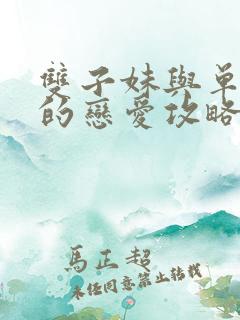 雙子妹與單
的戀愛攻略
馬正超
未任同意禁止转载